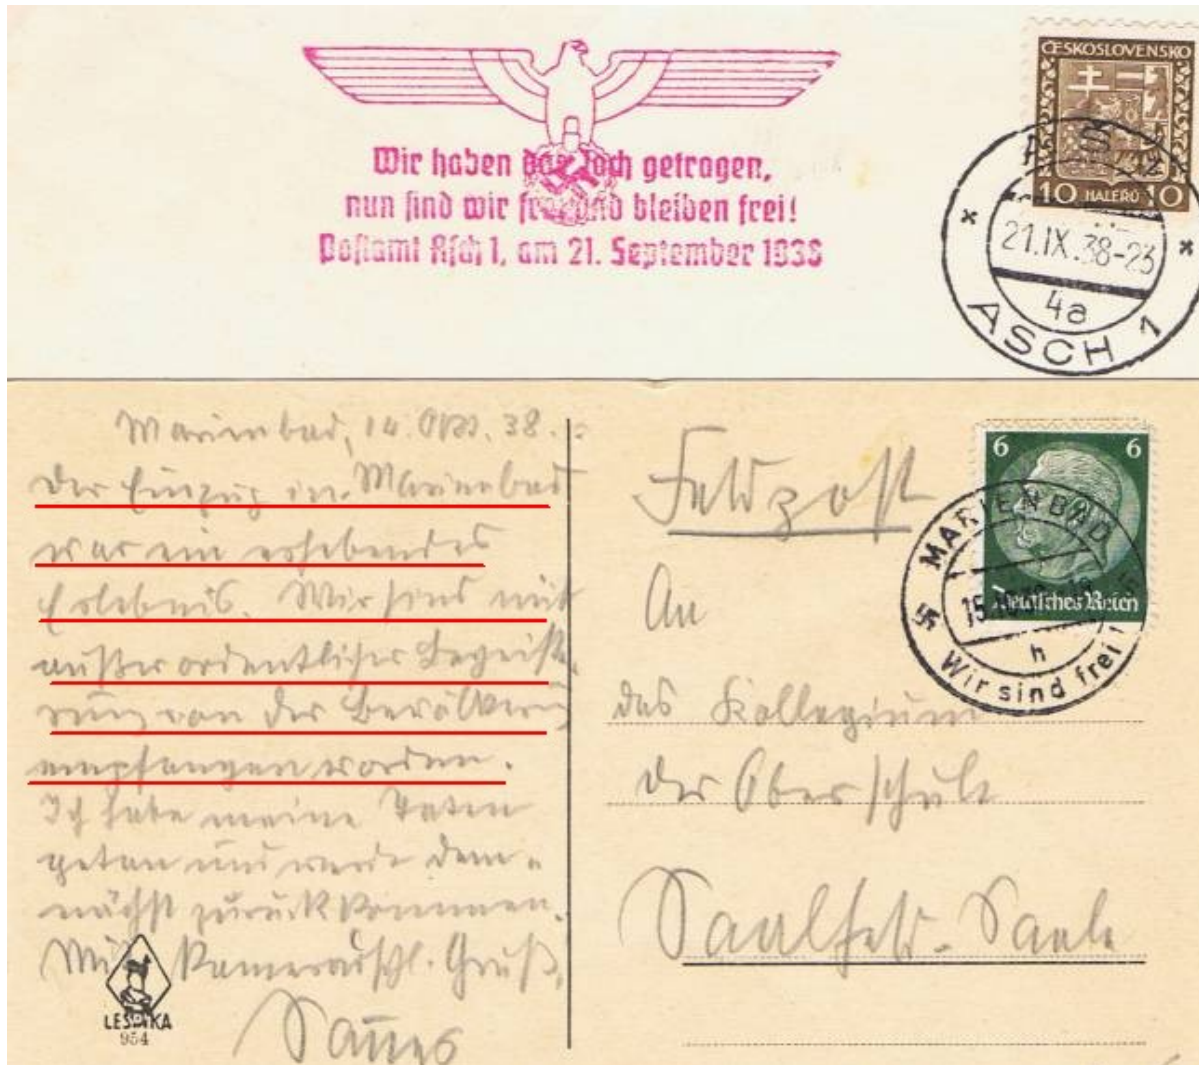 Wir haben das Joch getragen,
nun sind wir frei und bleiben frei!
Postamt Asch 1, am 21. September 1938
ČESKOSLOVENSKO
10 HALÉŘŮ 10
21.IX.38-23
4a
ASCH 1
Marienbad, 14. Okt. 38.
Der Einzug in Marienbad
war ein erhebendes
Erlebnis. Wir sind mit
außerordentlicher Begeiste-
rung von der Bevölkerung
empfangen worden.
Ich habe meine Taten
getan und werde dem-
nächst zurückkommen.
Mit kameradschl. Gruß,
LESMKA
954
Feldpost
6 6
Deutsches Reich
MARIENBAD
15
h
Wir sind frei!
An
das Kollegium
der Oberschule
Saalfeld-Saale